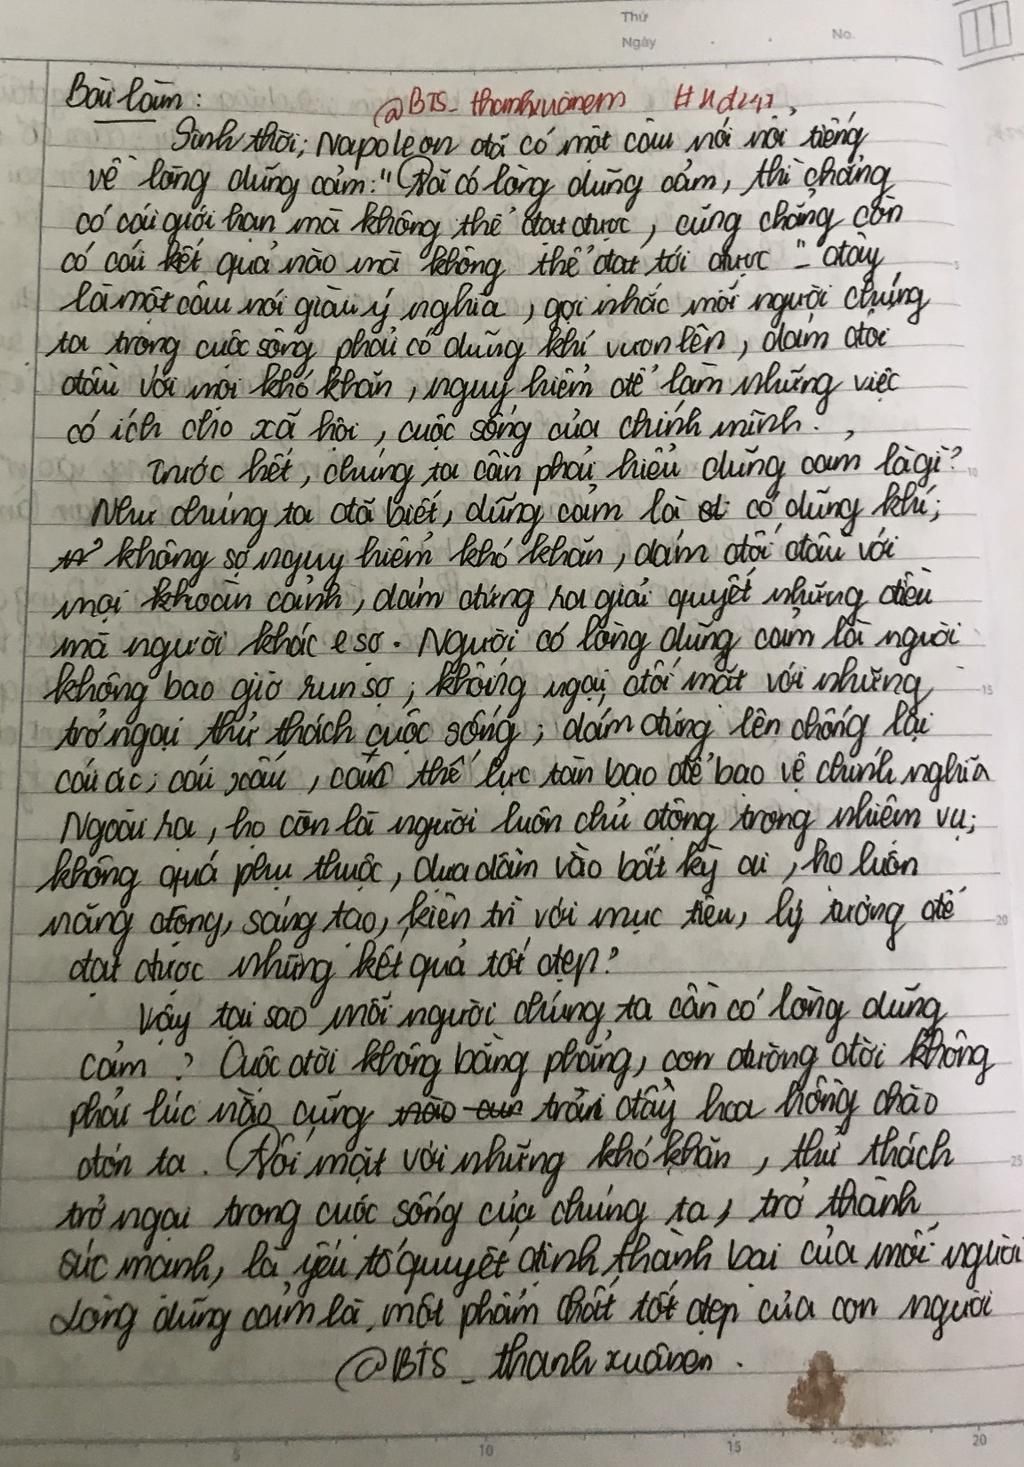 Thứ
Ngày . . No.
Bài làm : @BTS_thanhxuânem #Hd247
Sinh thời, Napoleon đã có một câu nói nổi tiếng
về lòng dũng cảm: "Đã có lòng dũng cảm, thì chẳng
có cái giới hạn mà không thể đạt được, cũng chẳng còn
có cái kết quả nào mà không thể đạt tới được" - đây
là một câu nói giàu ý nghĩa, gợi nhắc mỗi người chúng
ta trong cuộc sống phải có dũng khí vươn lên, dám đối
đầu với mọi khó khăn, nguy hiểm để làm những việc
có ích cho xã hội, cuộc sống của chính mình.
Trước hết, chúng ta cần phải hiểu dũng cảm là gì?
Như chúng ta đã biết, dũng cảm là có dũng khí;
không sợ nguy hiểm khó khăn, dám đối đầu với
mọi khoàn cảnh, dám đứng ra giải quyết những điều
mà người khác e sợ. Người có lòng dũng cảm là người
không bao giờ run sợ; không ngại đối mặt với những
trở ngại thử thách cuộc sống; dám đứng lên chống lại
cái ác; cái xấu, các thế lực tàn bạo để bảo vệ chính nghĩa
Ngoài ra, họ còn là người luôn chủ động trong nhiệm vụ;
không quá phụ thuộc, dựa dẫm vào bất kỳ ai, họ luôn
năng động, sáng tạo, kiên trì với mục tiêu, lý tưởng để
đạt được những kết quả tốt đẹp?
Vậy tại sao mỗi người chúng ta cần có lòng dũng
cảm? Cuộc đời không bằng phẳng, con đường đời không
phải lúc nào cũng tràn đầy hoa hồng chào
đón ta. Đối mặt với những khó khăn, thử thách
trở ngại trong cuộc sống của chúng ta, trở thành
sức mạnh, là yếu tố quyết định thành bại của mỗi người
Lòng dũng cảm là một phẩm chất tốt đẹp của con người
@BTS_thanhxuânem.
5 10 15 20